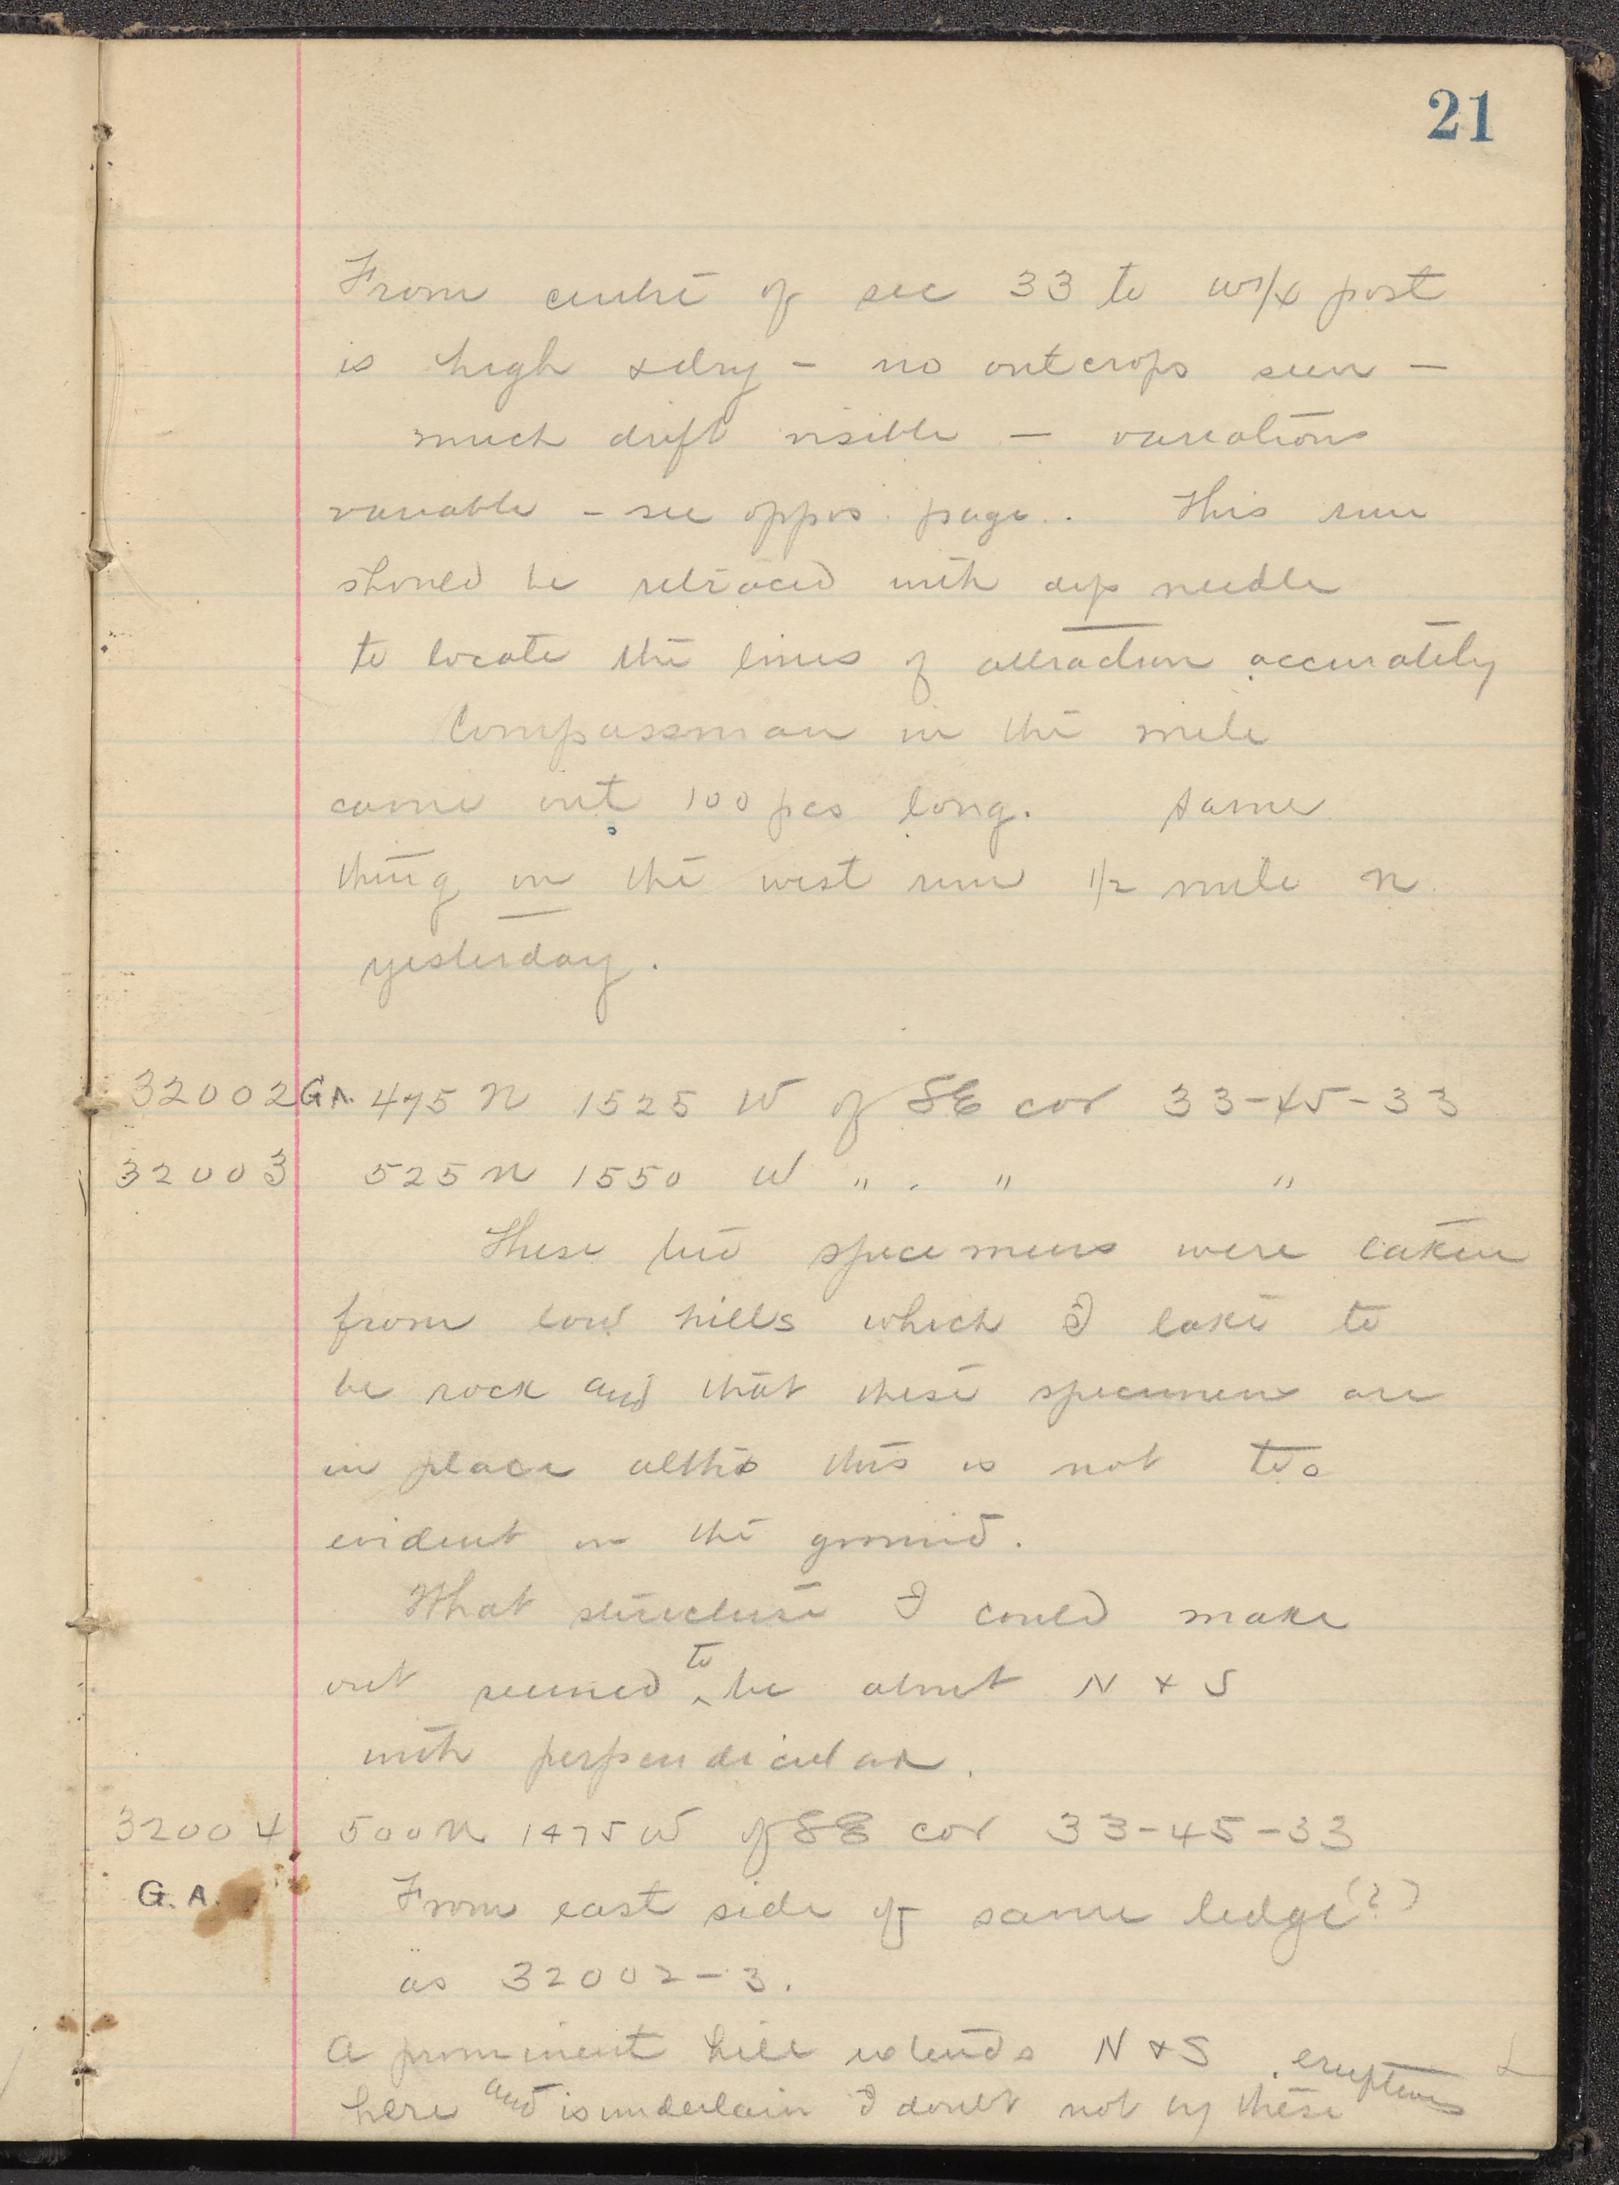 21
From centre of sec 33 to W 1/4 post
is high & dry - no outcrops seen -
much drift visible - variations
variable - see oppos. page. This run
should be retraced with dip needle
to locate the lines of attraction accurately
Compassman in the mile
came out 100 pcs long. Same
thing on the west run 1/2 mile N.
yesterday.
32002 G.A. 475 N 1525 W of SE cor 33-45-33
32003 525 N 1550 W " . " "
These two specimens were taken
from low hills which I take to
be rock and that these specimens are
in place altho this is not too
evident on the ground.
What structure I could make
out seemed to be about N & S
with perpendicular.
32004 500 N 1475 W of SE cor 33-45-33
G.A. From east side of same ledge (?)
as 32002-3.
A prominent hill extends N & S
here and is underlain I doubt not by these eruptives